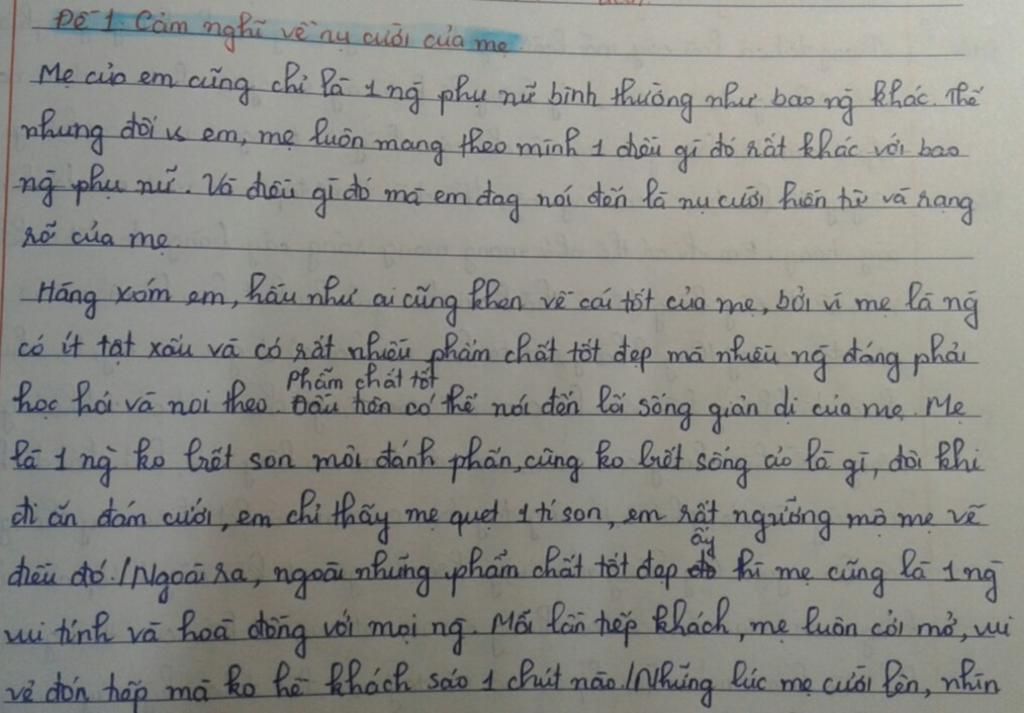 Đề 1: Cảm nghĩ về nụ cười của mẹ
Mẹ của em cũng chỉ là 1 ng̀ phụ nữ bình thường như bao ng̀ khác. Thế
nhưng đối vs em, mẹ luôn mang theo mình 1 điều gì đó rất khác với bao
ng̀ phụ nữ. Và điều gì đó mà em đag nói đến là nụ cười hiền từ và rạng
rỡ của mẹ.
Hàng xóm em, hầu như ai cũng khen về cái tốt của mẹ, bởi vì mẹ là ng̀
có ít tật xấu và có rất nhiều phẩm chất tốt đẹp mà nhiều ng̀ đáng phải
Phẩm chất tốt
học hỏi và noi theo. Đầu tiên có thể nói đến lối sống giản dị của mẹ. Mẹ
là 1 ng̀ ko biết son môi đánh phấn, cũng ko biết sống ảo là gì, đôi khi
đi ăn đám cưới, em chỉ thấy mẹ quẹt 1 tí son, em rất ngưỡng mộ mẹ về
điều đó./Ngoài ra, ngoài những phẩm chất tốt đẹp ấy thì mẹ cũng là 1 ng̀
vui tính và hoà đồng với mọi ng̀. Mỗi lần tiếp khách, mẹ luôn cởi mở, vui
vẻ đón tiếp mà ko hề khách sáo 1 chút nào./Những lúc mẹ cười lên, nhìn